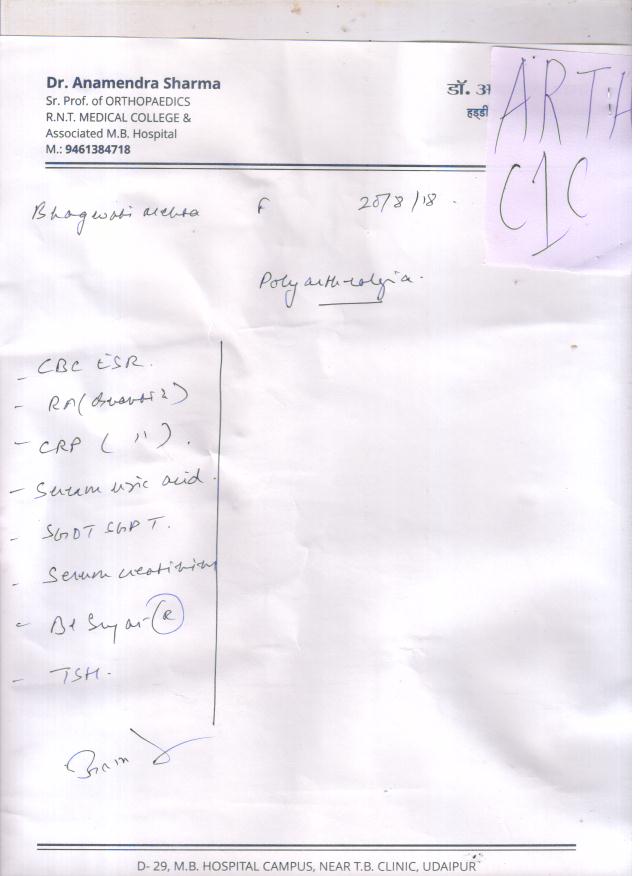 Dr. Anamendra Sharma
Sr. Prof. of ORTHOPAEDICS
R.N.T. MEDICAL COLLEGE &
Associated M.B. Hospital
M.: 9461384718
डॉ. अ
हड्डी
ARTH
C1C
Bhagwati Mehta F 20/8/18
Polyarthralgia.
- CBC ESR.
- RA (
- CRP ( " ).
- Serum uric acid.
- SGOT SGPT.
- Serum creatinine
- Bl Sugar (R)
- TSH.
D- 29, M.B. HOSPITAL CAMPUS, NEAR T.B. CLINIC, UDAIPUR